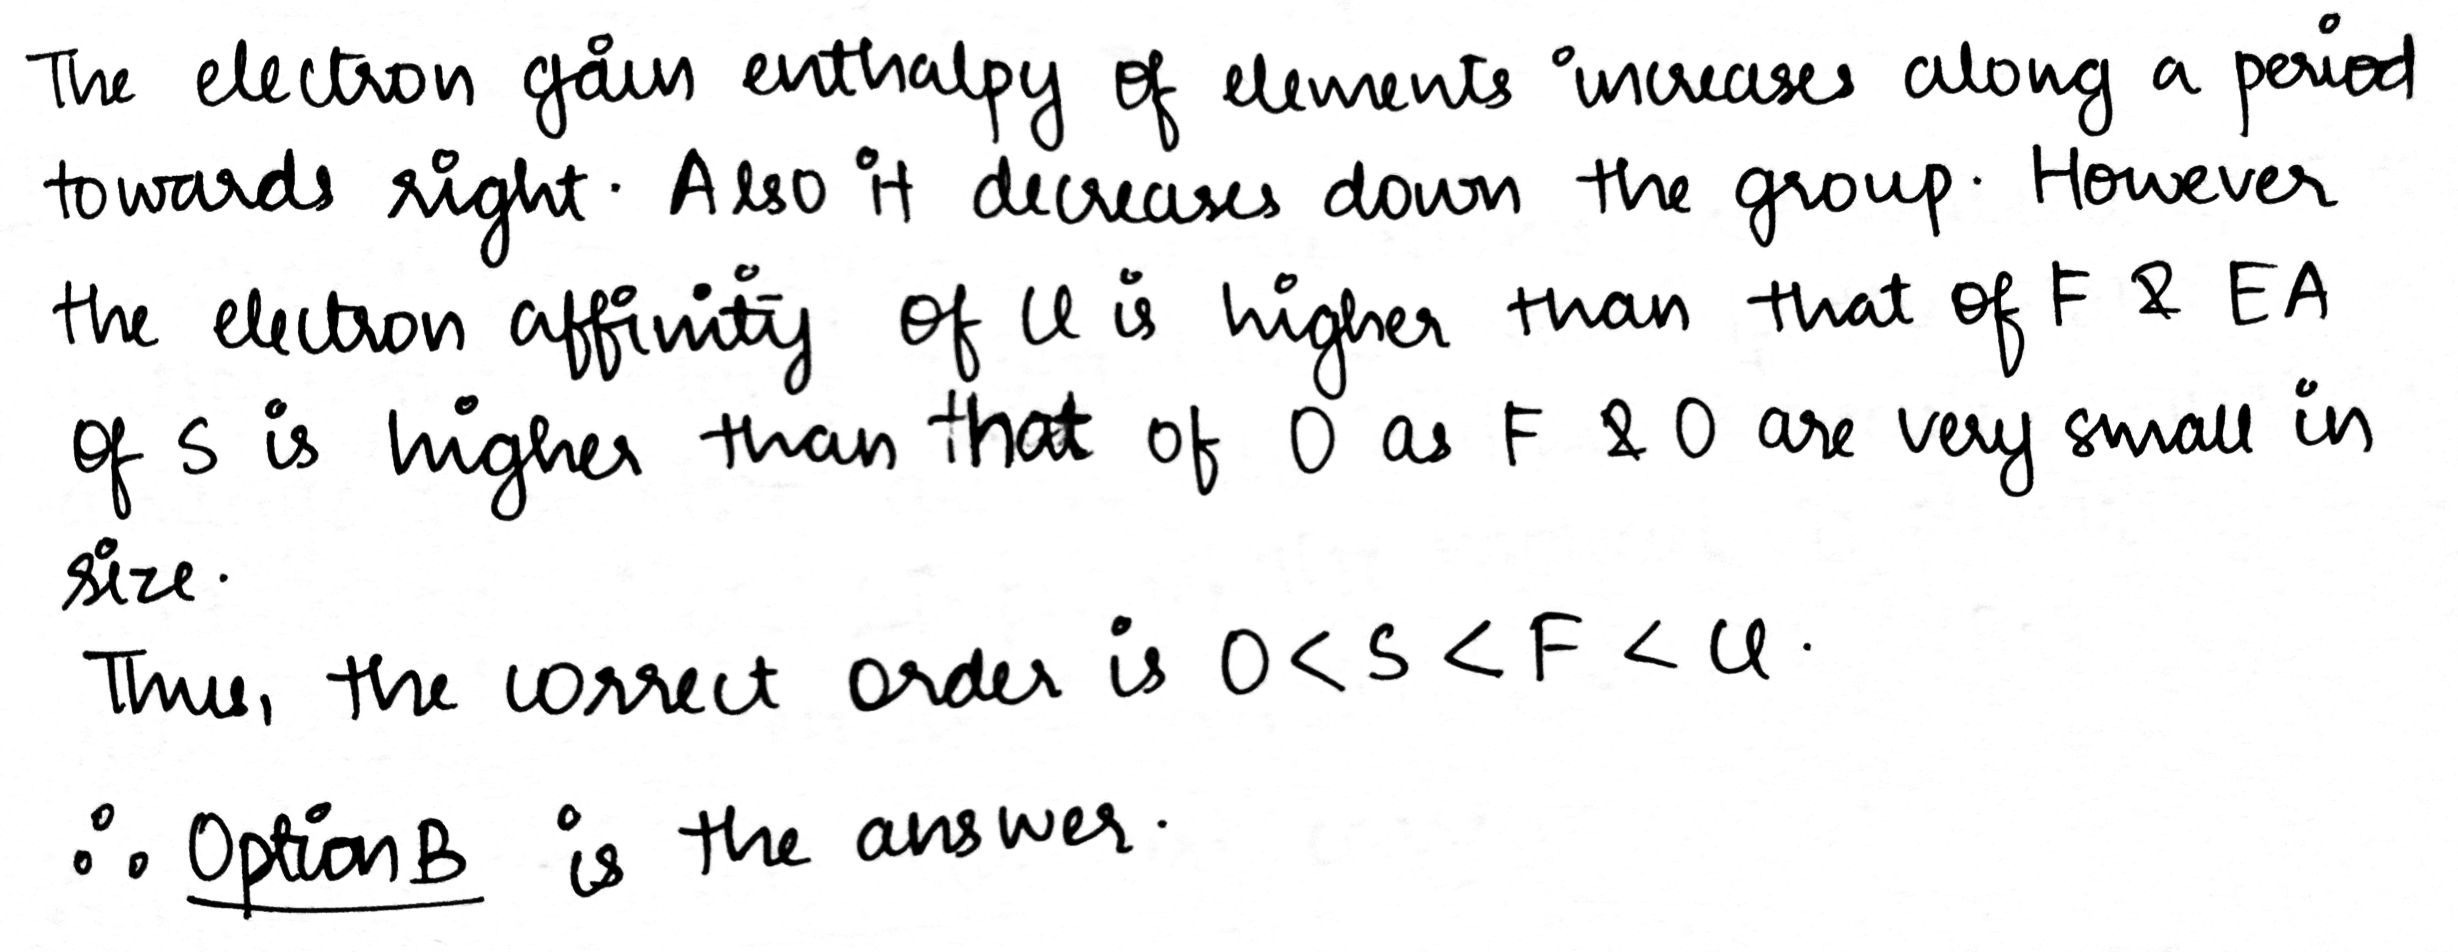 The electron gain enthalpy of elements increases along a period
towards right. Also it decreases down the group. However
the electron affinity of Cl is higher than that of F & EA
of S is higher than that of O as F & O are very small in
size.
Thus, the correct order is O < S < F < Cl.
∴ Option B is the answer.